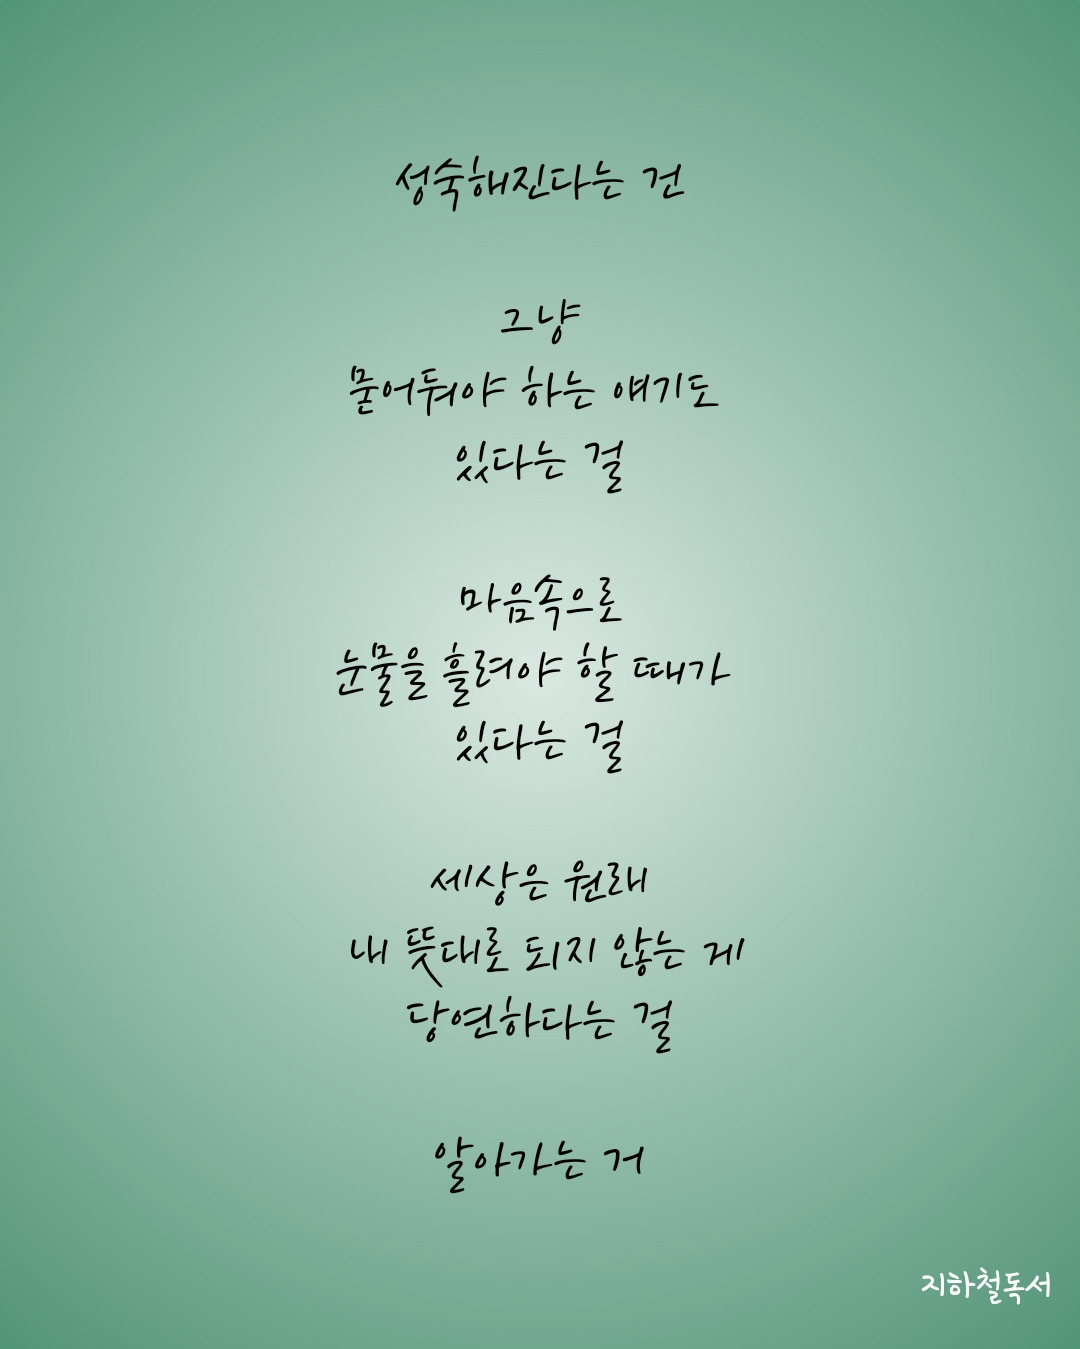 성숙해진다는 건
그냥
묻어둬야 하는 얘기도
있다는 걸
마음속으로
눈물을 흘려야 할 때가
있다는 걸
세상은 원래
내 뜻대로 되지 않는 게
당연하다는 걸
알아가는 거
지하철독서